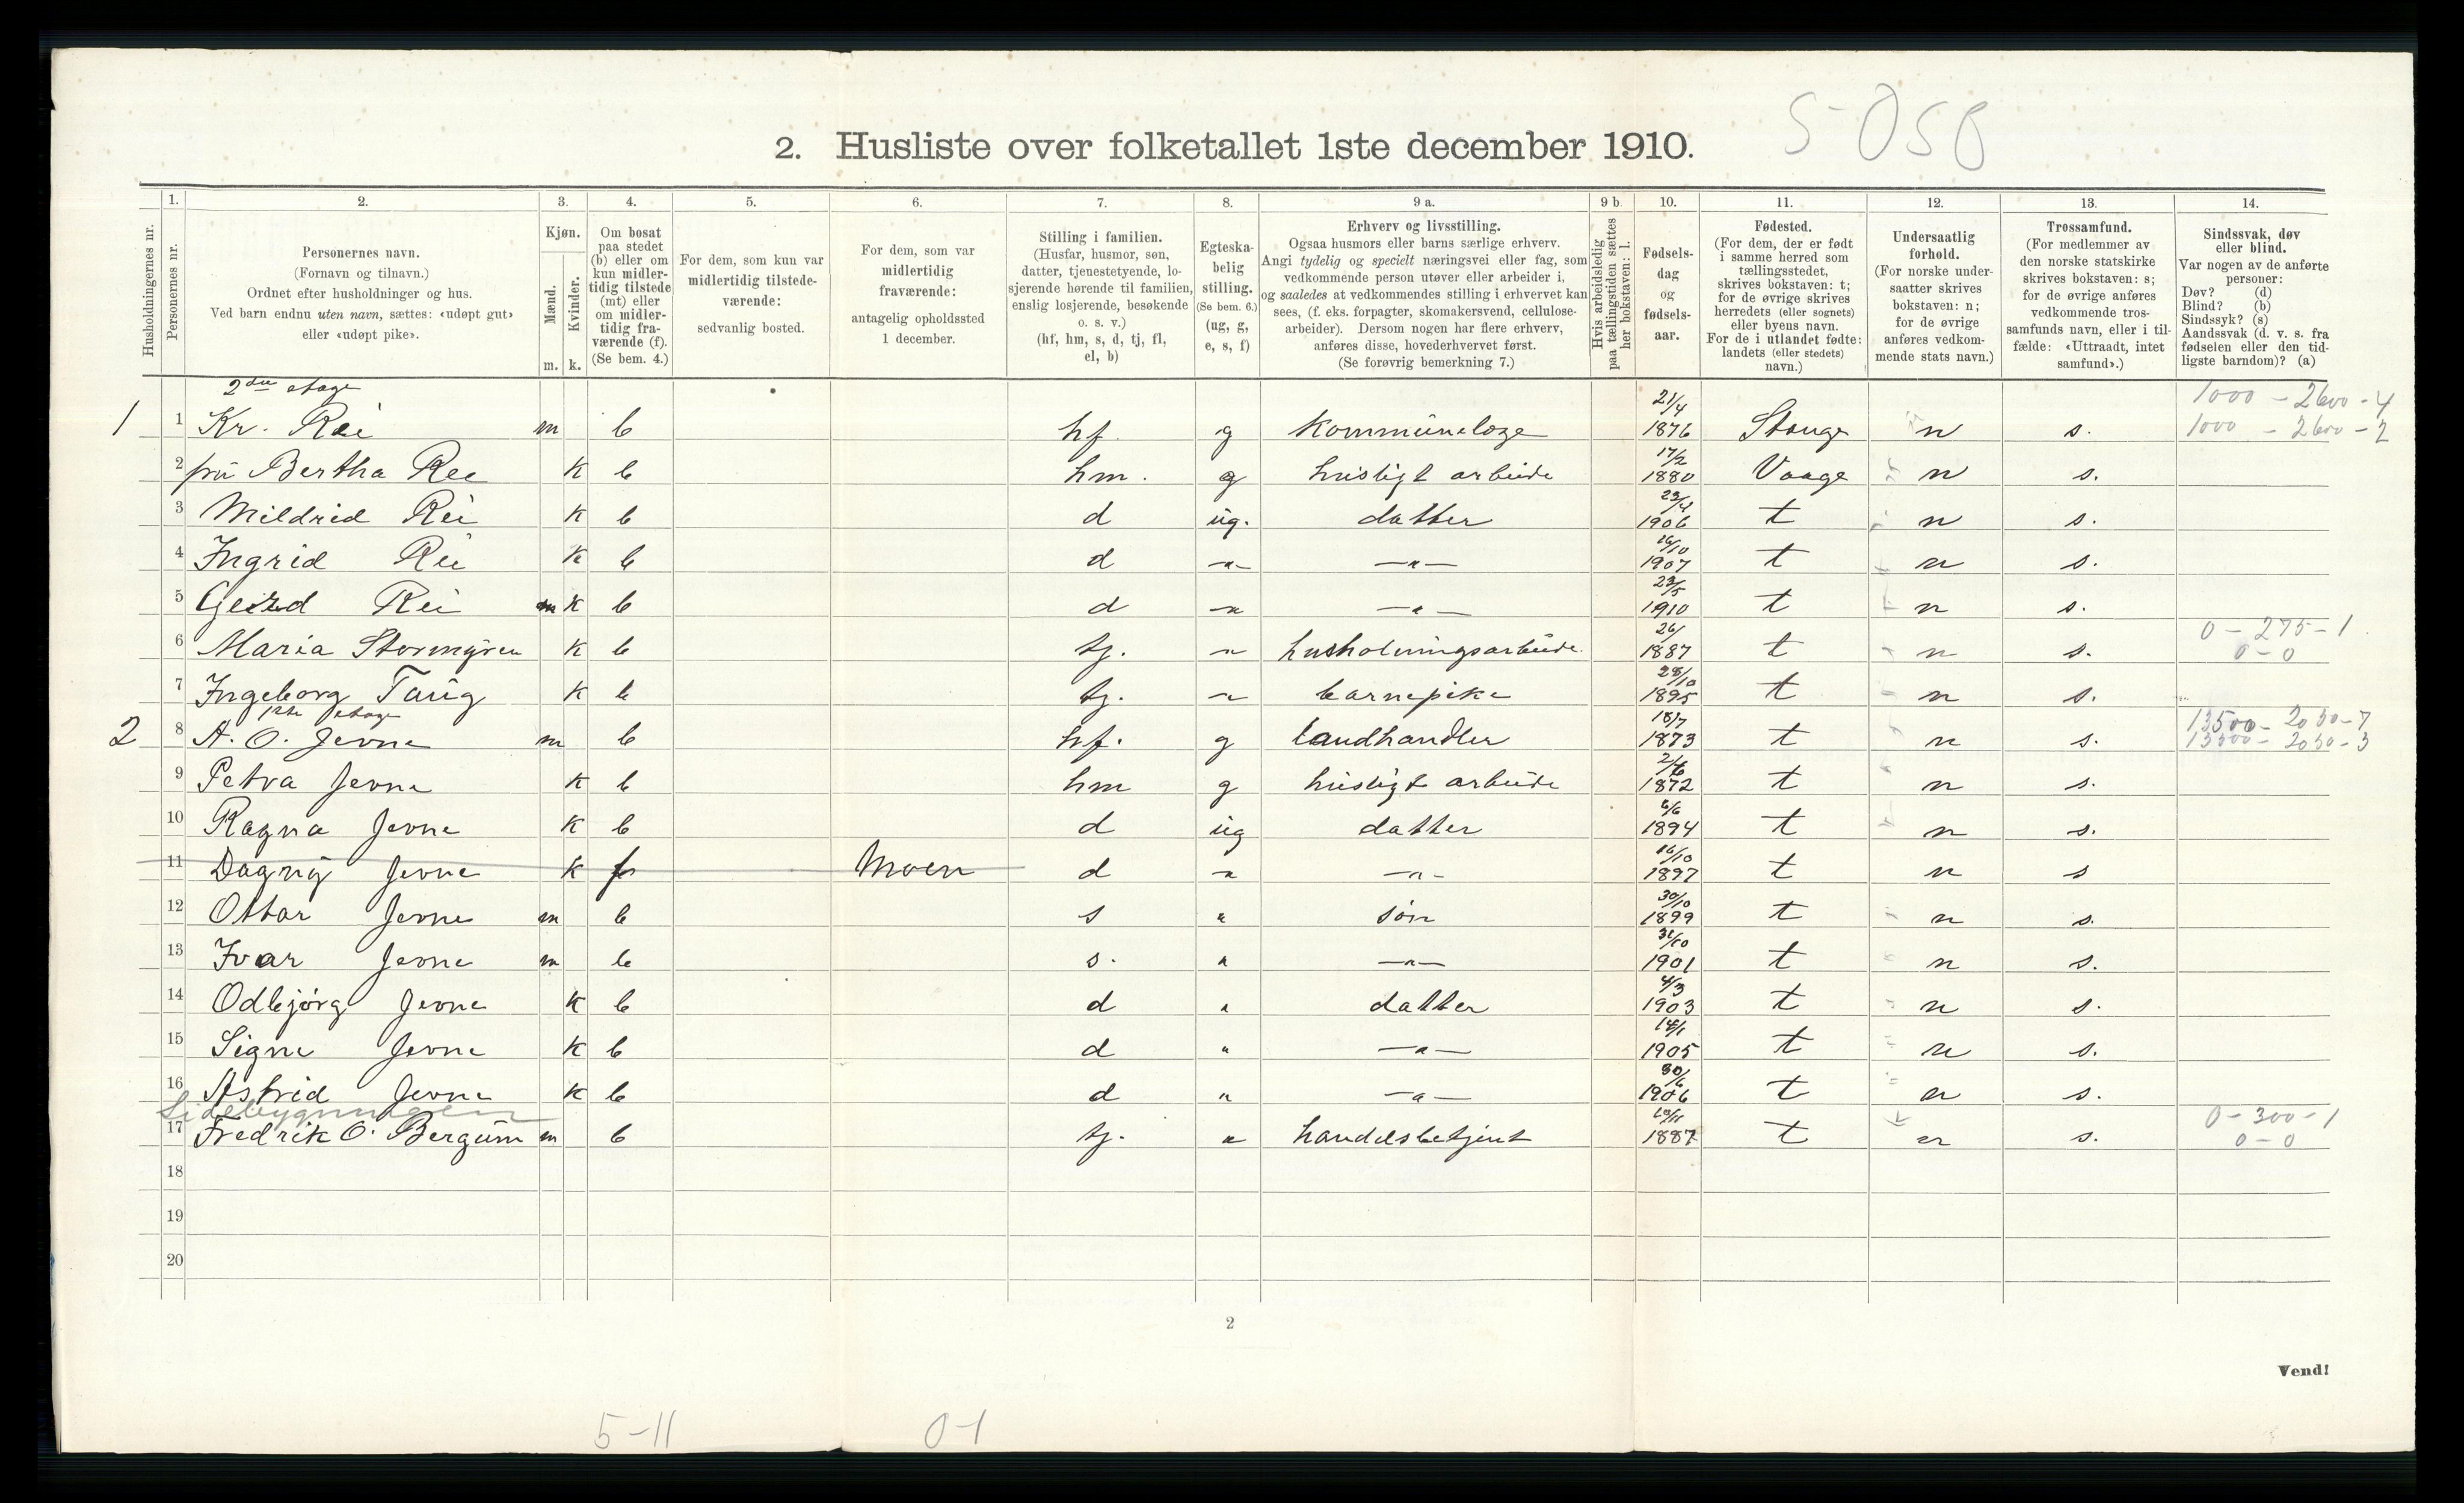 5-050
2. Husliste over folketallet 1ste december 1910.
Husholdningernes nr.
1. Personernes nr.
2. Personernes navn. (Fornavn og tilnavn.) Ordnet efter husholdninger og hus. Ved barn endnu uten navn, sættes: «udøpt gut» eller «udøpt pike».
3. Kjøn. Mænd. m. Kvinder. k.
4. Om bosat paa stedet (b) eller om kun midlertidig tilstede (mt) eller om midlertidig fraværende (f). (Se bem. 4.)
5. For dem, som kun var midlertidig tilstedeværende: sedvanlig bosted.
6. For dem, som var midlertidig fraværende: antagelig opholdssted 1 december.
7. Stilling i familien. (Husfar, husmor, søn, datter, tjenestetyende, losjerende hørende til familien, enslig losjerende, besøkende o. s. v.) (hf, hm, s, d, tj, fl, el, b)
8. Egteskabelig stilling. (Se bem. 6.) (ug, g, e, s, f)
9 a. Erhverv og livsstilling. Ogsaa husmors eller barns særlige erhverv. Angi tydelig og specielt næringsvei eller fag, som vedkommende person utøver eller arbeider i, og saaledes at vedkommendes stilling i erhvervet kan sees, (f. eks. forpagter, skomakersvend, cellulosearbeider). Dersom nogen har flere erhverv, anføres disse, hovederhvervet først. (Se forøvrig bemerkning 7.)
9 b. Hvis arbeidsledig paa tællingstiden sættes her bokstaven: l.
10. Fødselsdag og fødselsaar.
11. Fødested. (For dem, der er født i samme herred som tællingsstedet, skrives bokstaven: t; for de øvrige skrives herredets (eller sognets) eller byens navn. For de i utlandet fødte: landets (eller stedets) navn.)
12. Undersaatlig forhold. (For norske undersaatter skrives bokstaven: n; for de øvrige anføres vedkommende stats navn.)
13. Trossamfund. (For medlemmer av den norske statskirke skrives bokstaven: s; for de øvrige anføres vedkommende trossamfunds navn, eller i tilfælde: «Uttraadt, intet samfund».)
14. Sindssvak, døv eller blind. Var nogen av de anførte personer: Døv? (d) Blind? (b) Sindssyk? (s) Aandssvak (d. v. s. fra fødselen eller den tidligste barndom)? (a)
2den etage
1000 - 2600 - 4
1 1 Kr. Rei m b hf g Kommunelæge 21/4 1876 Stange n s. 1000 - 2600 - 2
2 fru Bertha Rei k b hm. g husligt arbeide 17/2 1880 Vaage n s.
3 Mildrid Rei k b d ug. datter 23/4 1906 t n s.
4 Ingrid Rei k b d -"- -"- 26/10 1907 t n s.
5 Gerd Rei k b d " -"- 23/5 1910 t n s.
6 Maria Stormyren k b tj. " husholdningsarbeide 26/ 1887 t n s. 0 - 275 - 1 0 - 0
7 Ingeborg k b tj. " barnepike 28/10 1895 t n s.
1ste etage
2 8 A. O. Jevne m b hf. g landhandler 18/7 1873 t n s. 13500 - 2050 - 7 13500 - 2050 - 3
9 Petra Jevne k b hm g husligt arbeide 2/6 1872 t n s.
10 Ragna Jevne k b d ug datter 6/6 1894 t n s.
11 Dagny Jevne k f Moen d " -"- 16/10 1897 t n s
12 Ottar Jevne m b s " søn 30/10 1899 t n s.
13 Ivar Jevne m b s. " -"- 31/10 1901 t n s.
14 Odbjørg Jevne k b d " datter 4/3 1903 t n s.
15 Signe Jevne k b d " -"- 14/1 1905 t n s.
16 Astrid Jevne k b d " -"- 30/6 1906 t n s.
Sidebygningen
17 Fredrik O. Bergum m b tj. " handelsbetjent 10/11 1887 t n s. 0 - 300 - 1 0 - 0
18
19
20
2
Vend!
5-11 0-1